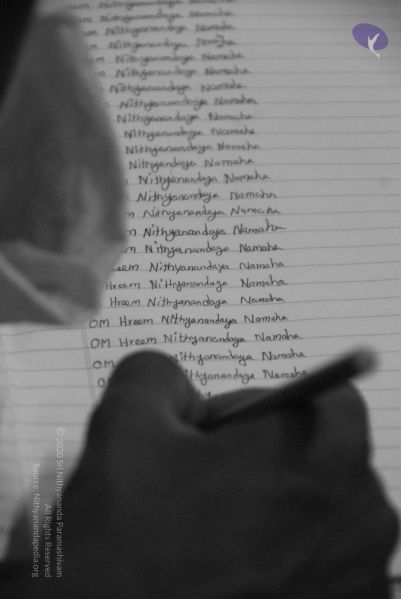 Nithyanandaya Namaha
Nithyanandaya Namaha
Nithyanandaya Namaha
Nithyanandaya Namaha
Nithyanandaya Namaha
Nithyanandaya Namaha
Nithyanandaya Namaha
Nithyanandaya Namaha
Nithyanandaya Namaha
Nithyanandaya Namaha
Nithyanandaya Namaha
Nithyanandaya Namaha
Nithyanandaya Namaha
Nithyanandaya Namaha
Nithyanandaya Namaha
Nithyanandaya Namaha
Hreem Nithyanandaya Namaha
Hreem Nithyanandaya Namaha
OM Hreem Nithyanandaya Namaha
OM Hreem Nithyanandaya Namaha
OM Nithyanandaya Namaha
Nithyanandaya Namaha
© 2020 Sri Nithyananda Paramashivam
All Rights Reserved
Source: Nithyanandapedia.org